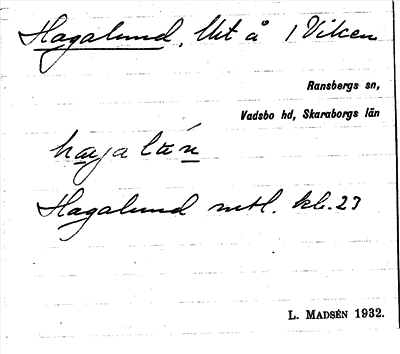 Hagalund, Ut å i Viken
Ransbergs sn,
Vadsbo hd, Skaraborgs län
Hagalund mtl. kb. 23
L. MADSÉN 1932.